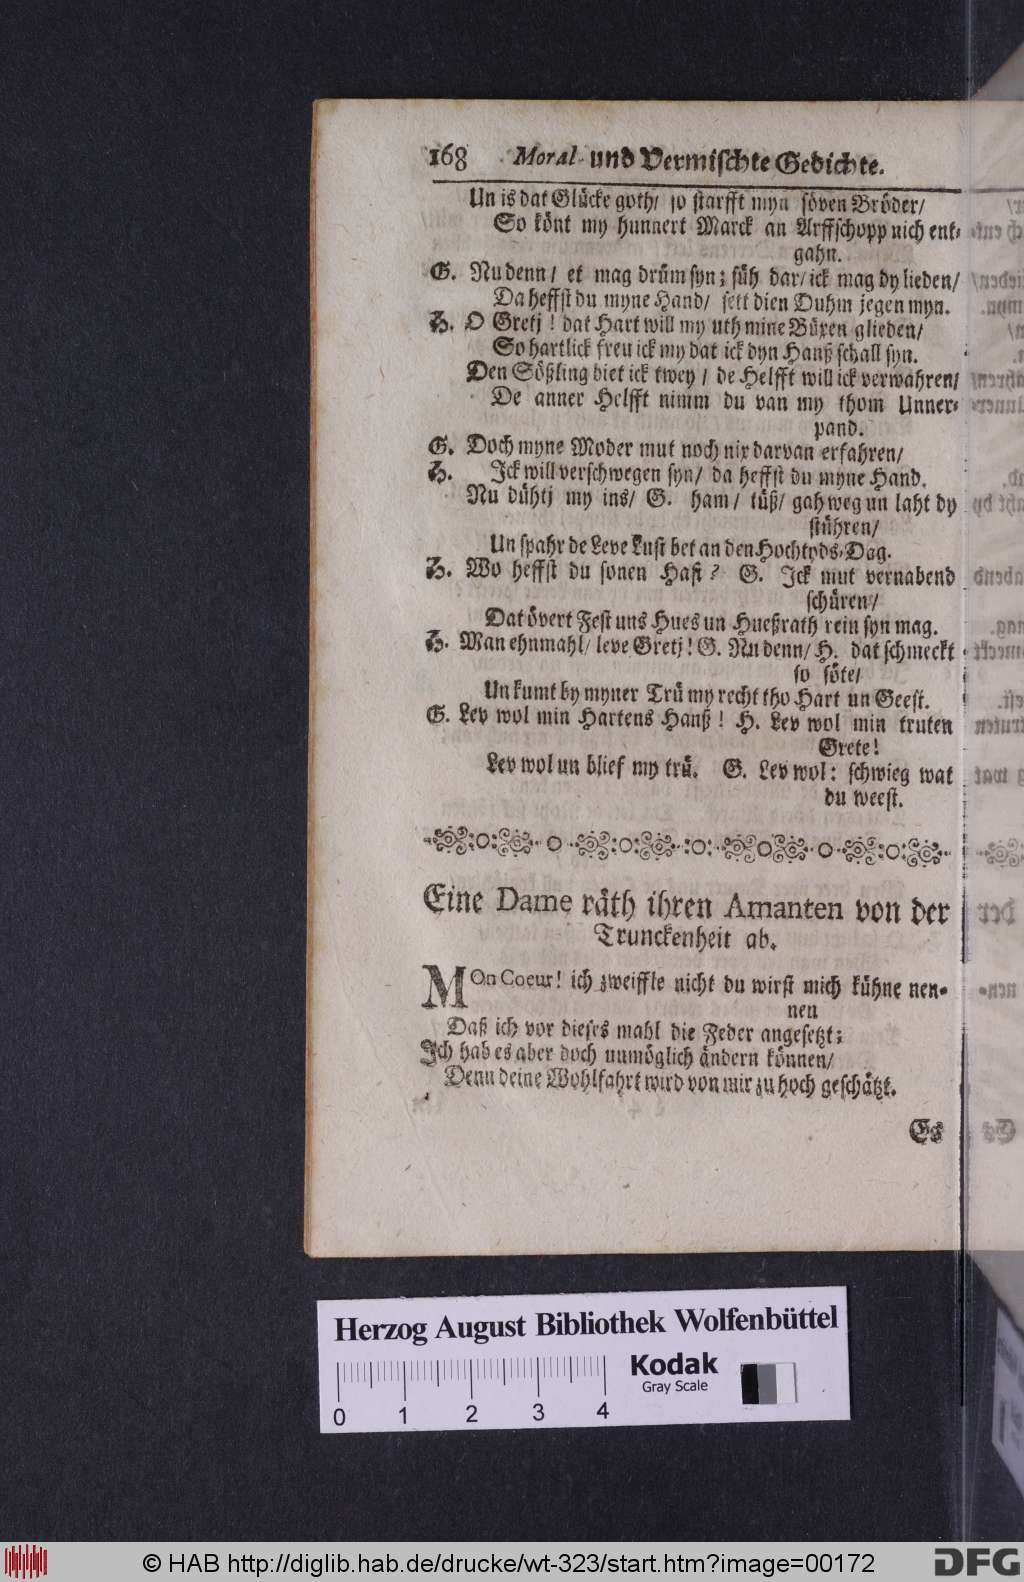 168 Moral- und Vermischte Gedichte.
Un is dat Glücke goth/ so starfft myn söven Bröder/
So könt my hunnert Marck an Arffschopp nich ent-
gahn.
G. Nu denn/ et mag drüm syn; süh dar/ ick mag dy lieden/
Da heffst du myne Hand/ sett dien Duhm jegen myn.
H. O Gretj! dat Hart will my uth mine Büxen glieden/
So hartlick freu ick my dat ick dyn Hanß schall syn.
Den Sößling biet ick twey/ de Helfft will ick verwahren/
De anner Helfft nimm du van my thom Unner-
pand.
G. Doch myne Moder mut noch nix darvan erfahren/
H. Ick will verschwegen syn/ da heffst du myne Hand.
Nu dühtj my ins/ G. ham/ tüß/ gah weg un laht dy
stühren/
Un spahr de Leve Lust bet an den Hochtyds-Dag.
H. Wo heffst du sonen Hast? G. Ick mut vernabend
schüren/
Dat övert Fest uns Hues un Hueßrath rein syn mag.
H. Man ehnmahl/ leve Gretj! G. Nu denn/ H. dat schmeckt
so söte/
Un kumt by myner Trü my recht tho Hart un Geest.
G. Lev wol min Hartens Hanß! H. Lev wol min truten
Grete!
Lev wol un blief my trü. G. Lev wol: schwieg wat
du weest.
Eine Dame räth ihren Amanten von der
Trunckenheit ab.
MOn Coeur! ich zweiffle nicht du wirst mich kühne nen-
nen
Daß ich vor dieses mahl die Feder angesetzt;
Ich hab es aber doch unmöglich ändern können/
Denn deine Wohlfahrt wird von mir zu hoch geschätzt.
Es
Herzog August Bibliothek Wolfenbüttel
Kodak
Gray Scale
0 1 2 3 4
© HAB http://diglib.hab.de/drucke/wt-323/start.htm?image=00172
DFG